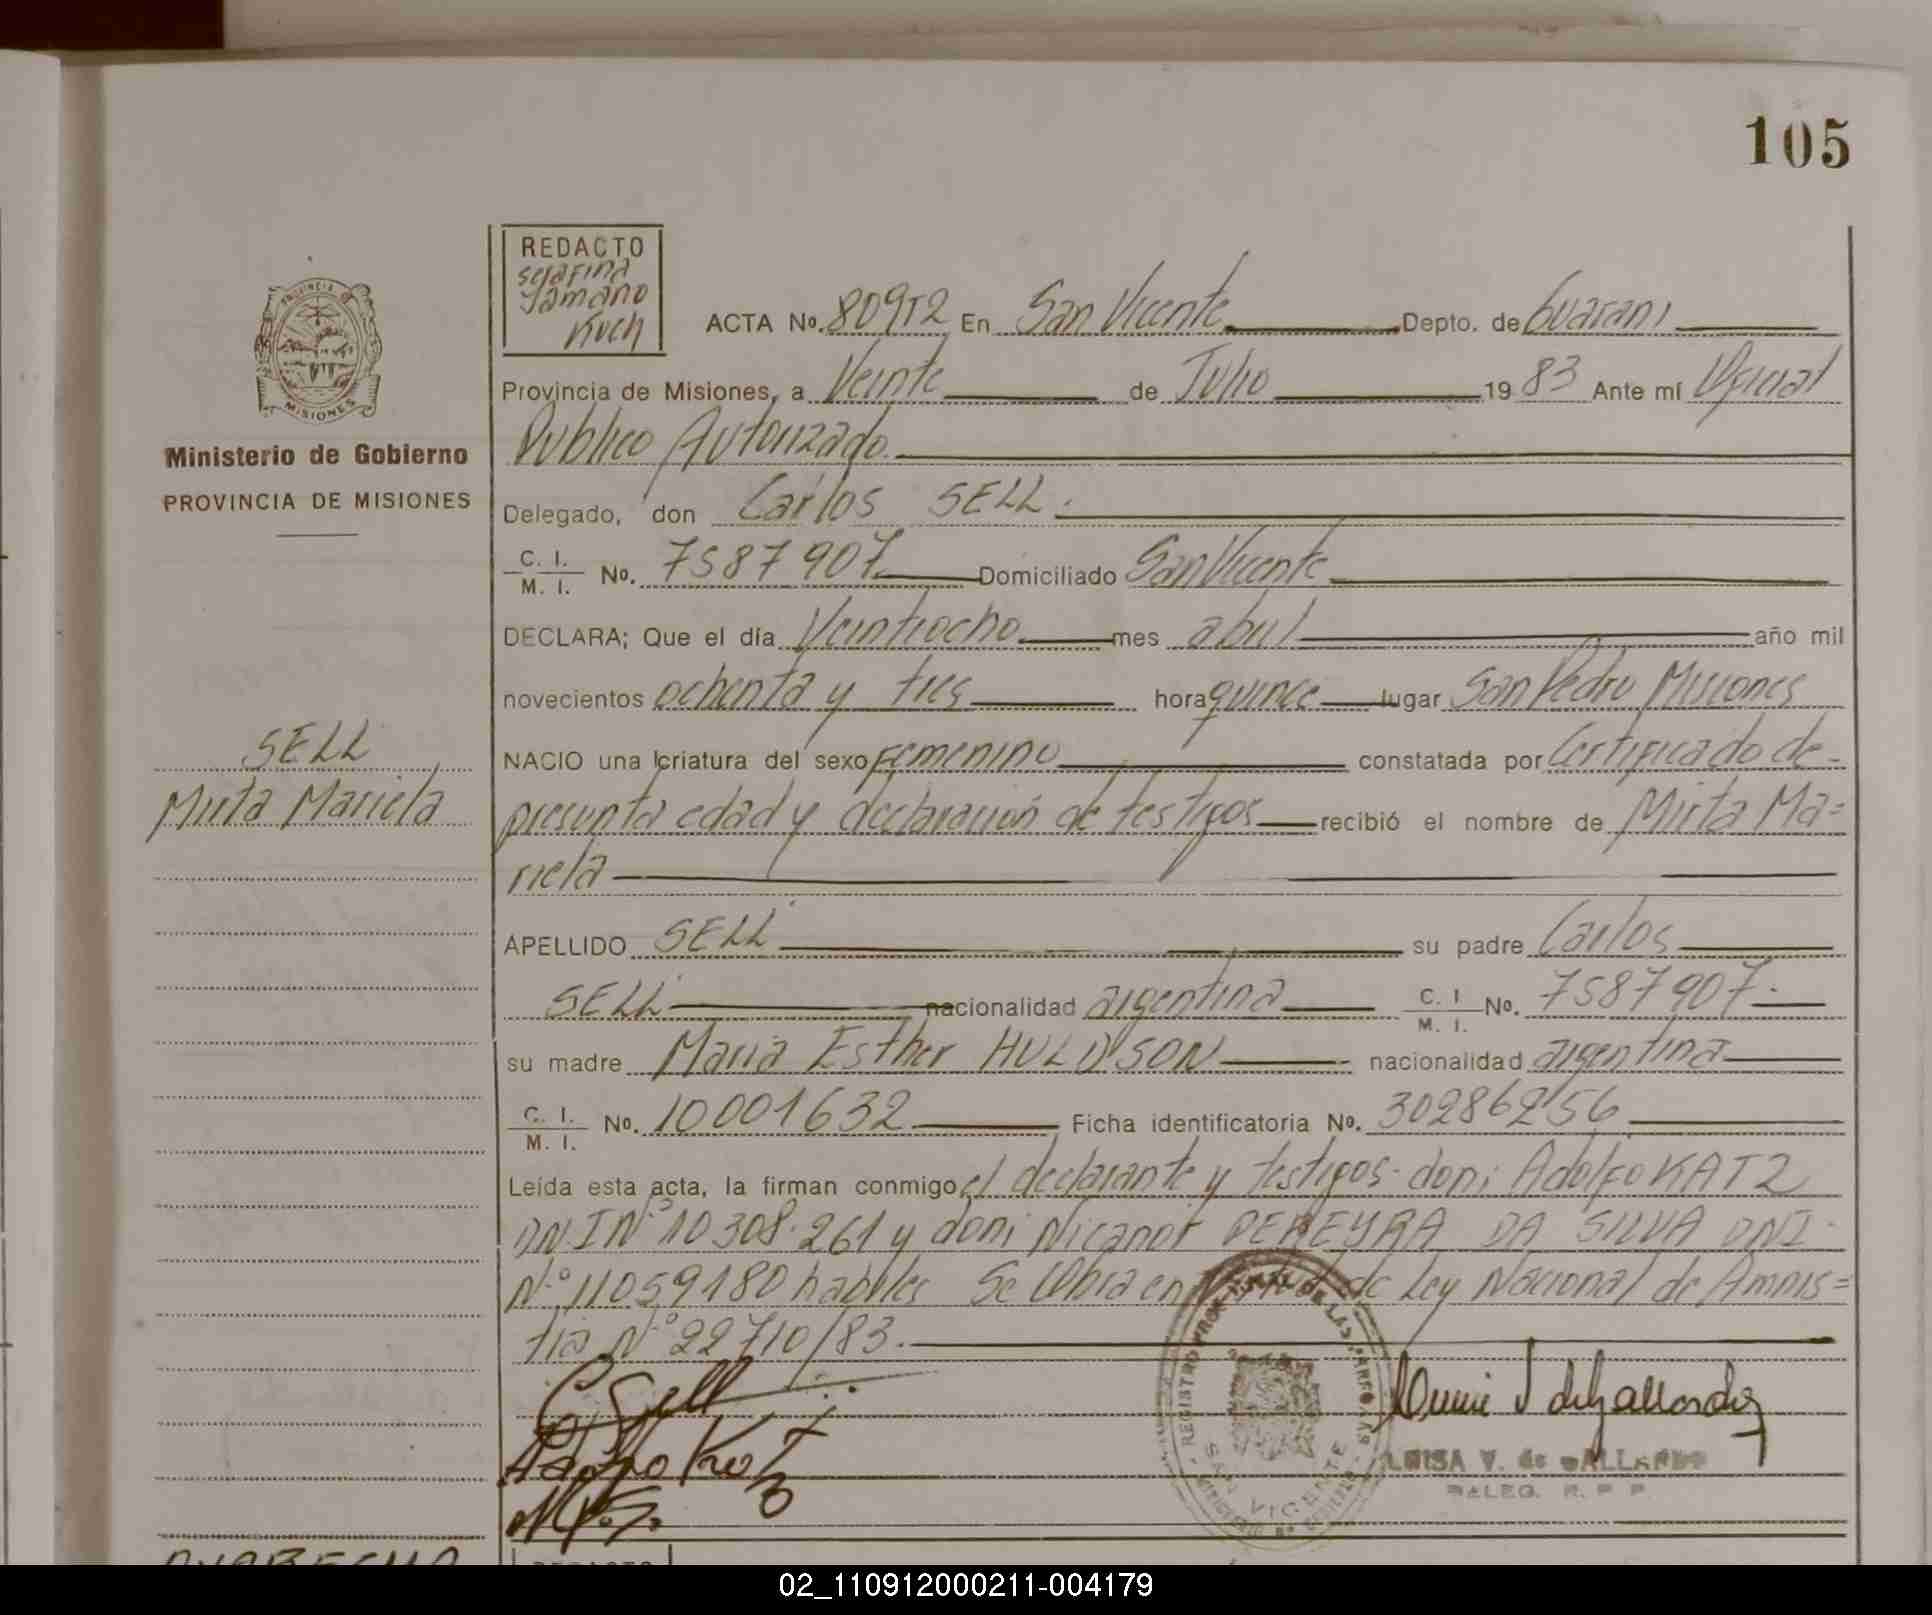 105
REDACTO
serafina
Tamano
Kuch
ACTA No. 809T2 En San Vicente Depto. de Guarani
Provincia de Misiones, a Veinte de Julio 19 83 Ante mí Oficial
Publico Autorizado.
PROVINCIA DE
MISIONES
Ministerio de Gobierno
PROVINCIA DE MISIONES
Delegado, don Carlos SELL.
C. I.
M. I. No. 7587907 Domiciliado San Vicente
DECLARA; Que el día Veintiocho mes abril año mil
novecientos ochenta y tres hora quince lugar San Pedro Misiones
SELL
Mirta Mariela
NACIO una criatura del sexo femenino constatada por Certificado de
presunta edad y declaración de testigos recibió el nombre de Mirta Ma=
riela
APELLIDO SELL su padre Carlos
SELL nacionalidad argentina C. I.
M. I. No. 7587907.
su madre Maria Esther HULDSON nacionalidad argentina
C. I.
M. I. No. 10001632 Ficha identificatoria No. 30286256
Leída esta acta, la firman conmigo el declarante y testigos don: Adolfo KATZ
DNI Nº 10308.261 y don: Nicanor PEREYRA DA SILVA DNI
Nº 11059180 habiles Se labra en de Ley Nacional de Amnis=
tia Nº 22710/83.
C Sell
Adolfo Katz
N.P.S.
REGISTRO PROVINCIAL DE LAS PERSONAS
SAN VICENTE
LUISA V. de GALLARDO
DELEG. R. P. P.
REDACTO
02_110912000211-004179